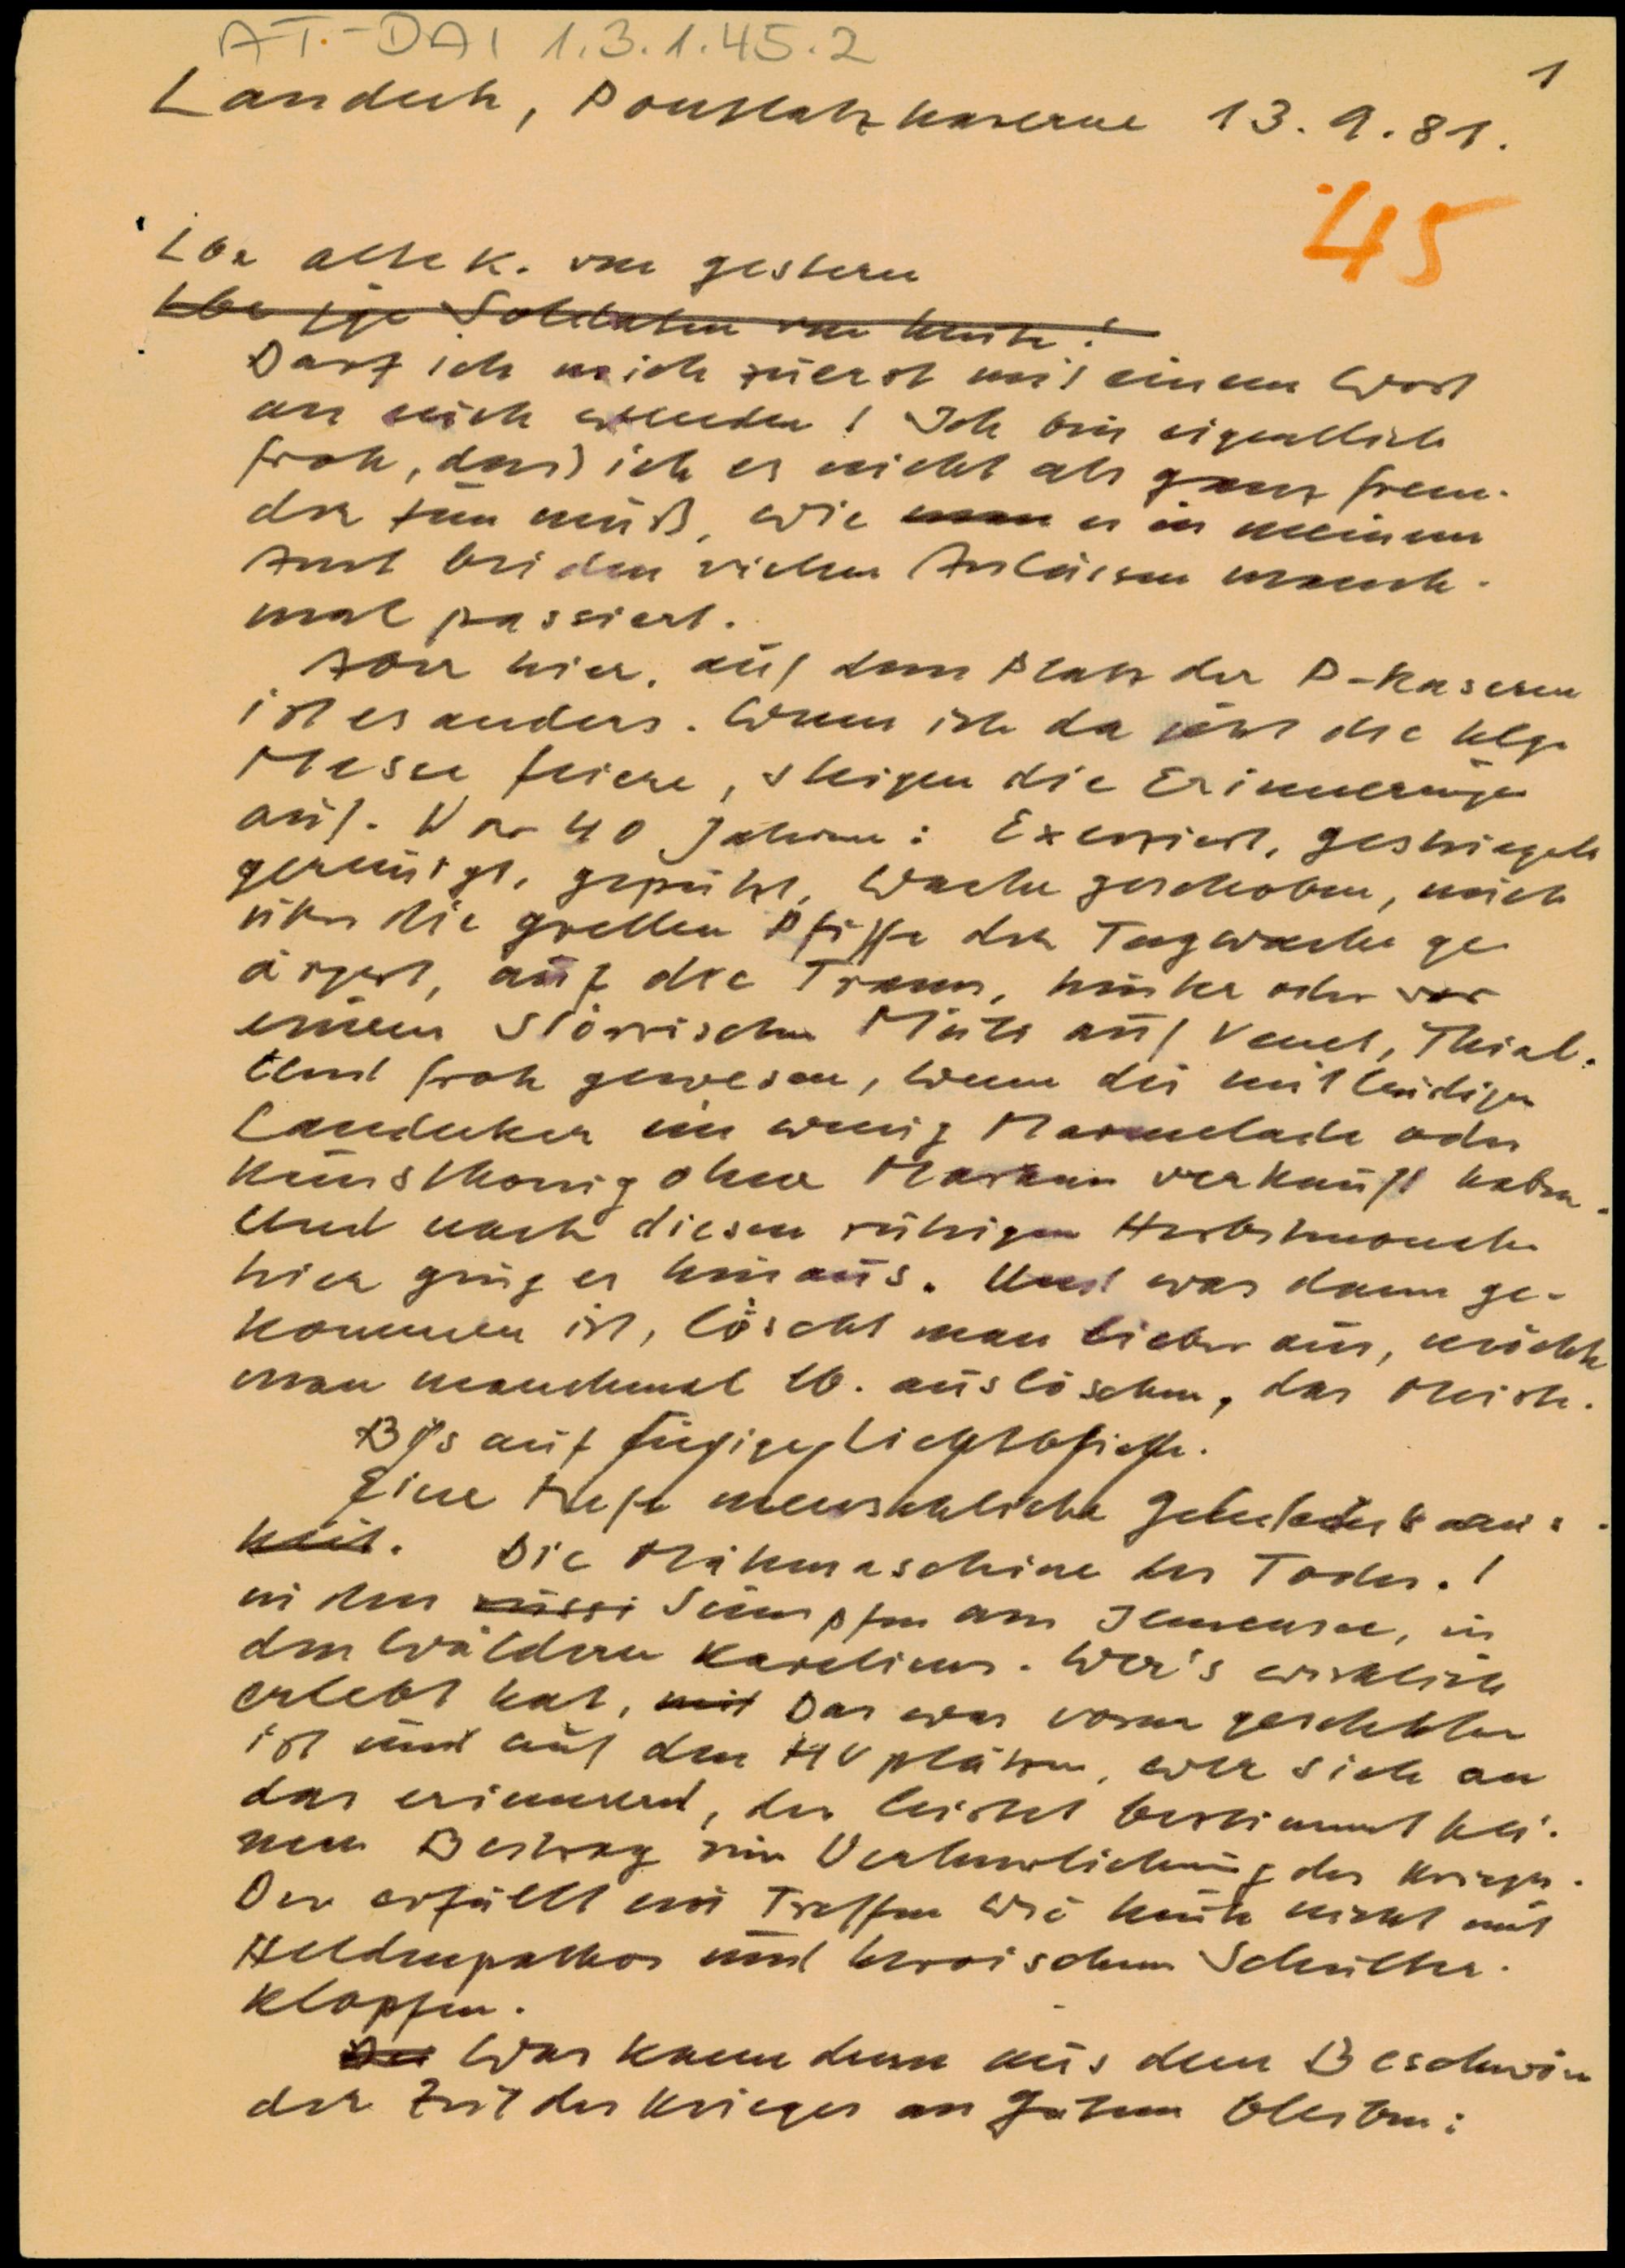 AT-DAI 1.3.1.45.2
1
Landeck, Pontlatzkaserne 13.9.81.
45
Lbe alte K. von gestern
Lbe jge Soldaten von heute!
Darf ich mich zuerst mit einem Wort
an euch wenden! Ich bin eigentlich
froh, dass ich es nicht als ganz frem-
der tun muß, wie man es in meinem
Amt bei den vielen Anlässen manch-
mal passiert.
Aber hier, auf dem Platz der P-Kaserne
ist es anders. Wenn ich da jetzt die hlge
Messe feiere, steigen die Erinnerungen
auf. Vor 40 Jahren: Exerziert, gestriegelt
gereinigt, geputzt, Wache geschoben, mich
über die grellen Pfiffe der Tagwache ge-
ärgert, auf die Trams, hinter oder vor
einem störrischen Muli auf Venet, Thial.
Und froh gewesen, wenn die mitleidigen
Landecker ein wenig Marmelade oder
Kunsthonig ohne Marken verkauft haben.
Und nach diesen ruhigen Herbstmonaten
hier ging es hinaus. Und was dann ge-
kommen ist, löscht man lieber aus, möchte
man manchmal lb. auslöschen, das Meiste.
Bis auf einige Lichtblicke.
Eine tiefe menschliche
keit. Die Mähmaschine des Todes.!
in den russi Sümpfen am Ilmensee, in
den Wäldern Kareliens. Wer's wirklich
erlebt hat, mit Das was vorne geschehen
ist und auf den HVplätzen, wer sich an
das erinnernd, der leistet bestimmt kei-
nen Beitrag zur Verherrlichung des Krieges.
Der erfüllt ein Treffen wie heute nicht mit
Heldenpathos und heroischem Schulter-
klopfen.
Der Was kann denn aus dem Beschwören
der Zeit des Krieges an Gutem bleiben: